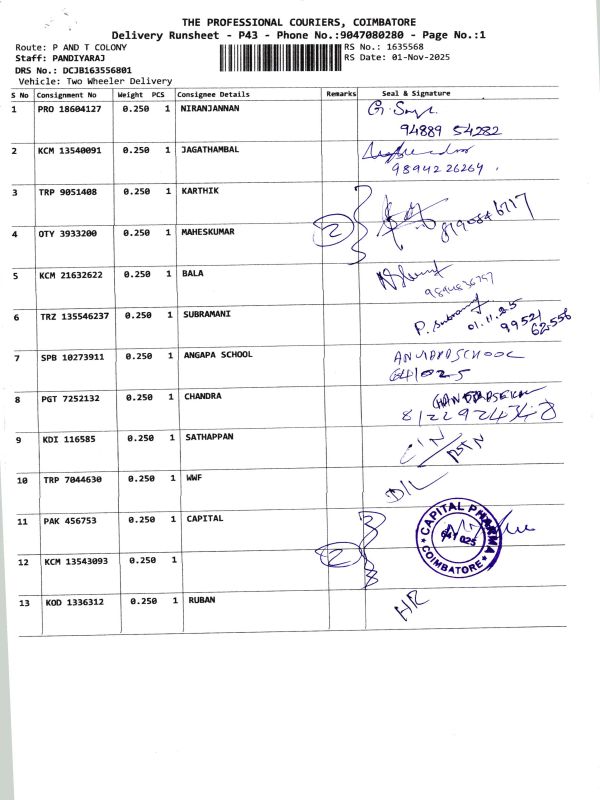 THE PROFESSIONAL COURIERS, COIMBATORE
Delivery Runsheet - P43 - Phone No.:9047080280 - Page No.:1
Route: P AND T COLONY RS No.: 1635568
Staff: PANDIYARAJ RS Date: 01-Nov-2025
DRS No.: DCJB163556801
Vehicle: Two Wheeler Delivery
S No Consignment No Weight PCS Consignee Details Remarks Seal & Signature
1 PRO 18604127 0.250 1 NIRANJANNAN
94889 54282
2 KCM 13540091 0.250 1 JAGATHAMBAL
9894226264.
3 TRP 9051408 0.250 1 KARTHIK
2
4 OTY 3933200 0.250 1 MAHESKUMAR
5 KCM 21632622 0.250 1 BALA
6 TRZ 135546237 0.250 1 SUBRAMANI P. Subramani 01.11.25
99521
62556
7 SPB 10273911 0.250 1 ANGAPA SCHOOL ANGAPPA SCHOOL
641025
8 PGT 7252132 0.250 1 CHANDRA
8122924348
9 KDI 116585 0.250 1 SATHAPPAN
10 TRP 7044630 0.250 1 WWF D/L
11 PAK 456753 0.250 1 CAPITAL CAPITAL PHARMA
641 025
COIMBATORE
2
12 KCM 13543093 0.250 1
13 KOD 1336312 0.250 1 RUBAN HR